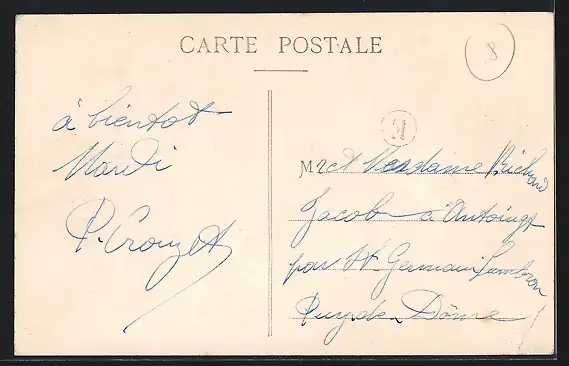 CARTE POSTALE
8
à bientot
Mardi
P. Crouzet
M r et Madame Richard
Jacob à Antoingt
par St Germain Lembron
Puy de Dôme